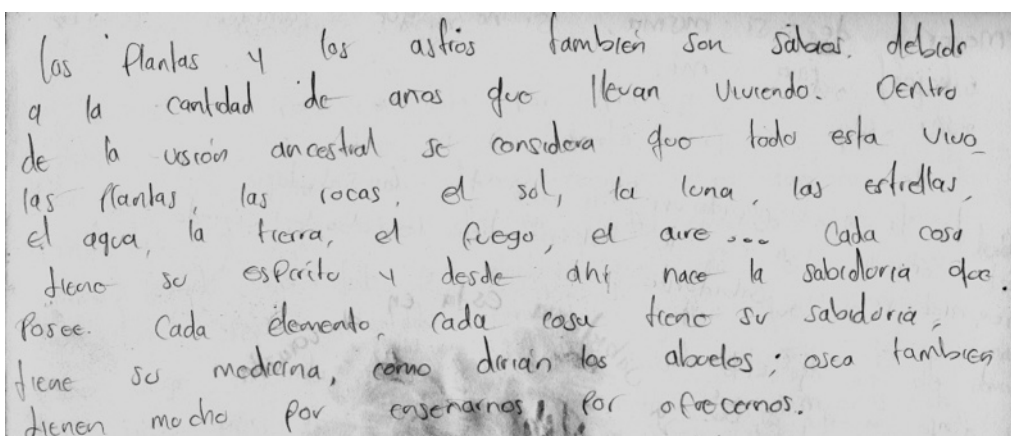 las plantas y los astros también son sabios. debido
a la cantidad de anos que llevan viviendo. Dentro
de la visión ancestral se considera que todo esta vivo
las plantas, las rocas, el sol, la luna, las estrellas,
el agua, la tierra, el fuego, el aire... Cada cosa
tiene su espirito y desde ahí nace la sabidoria que
posee. Cada elemento, cada cosa tiene su sabidoria,
tiene su medicina, como dirian los abuelos; osea tambien
tienen mucho por ensenarnos, por ofrecernos.